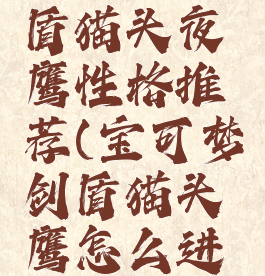 盾猫头夜
鹰性格推
荐(宝可梦
剑盾猫头
鹰怎么进